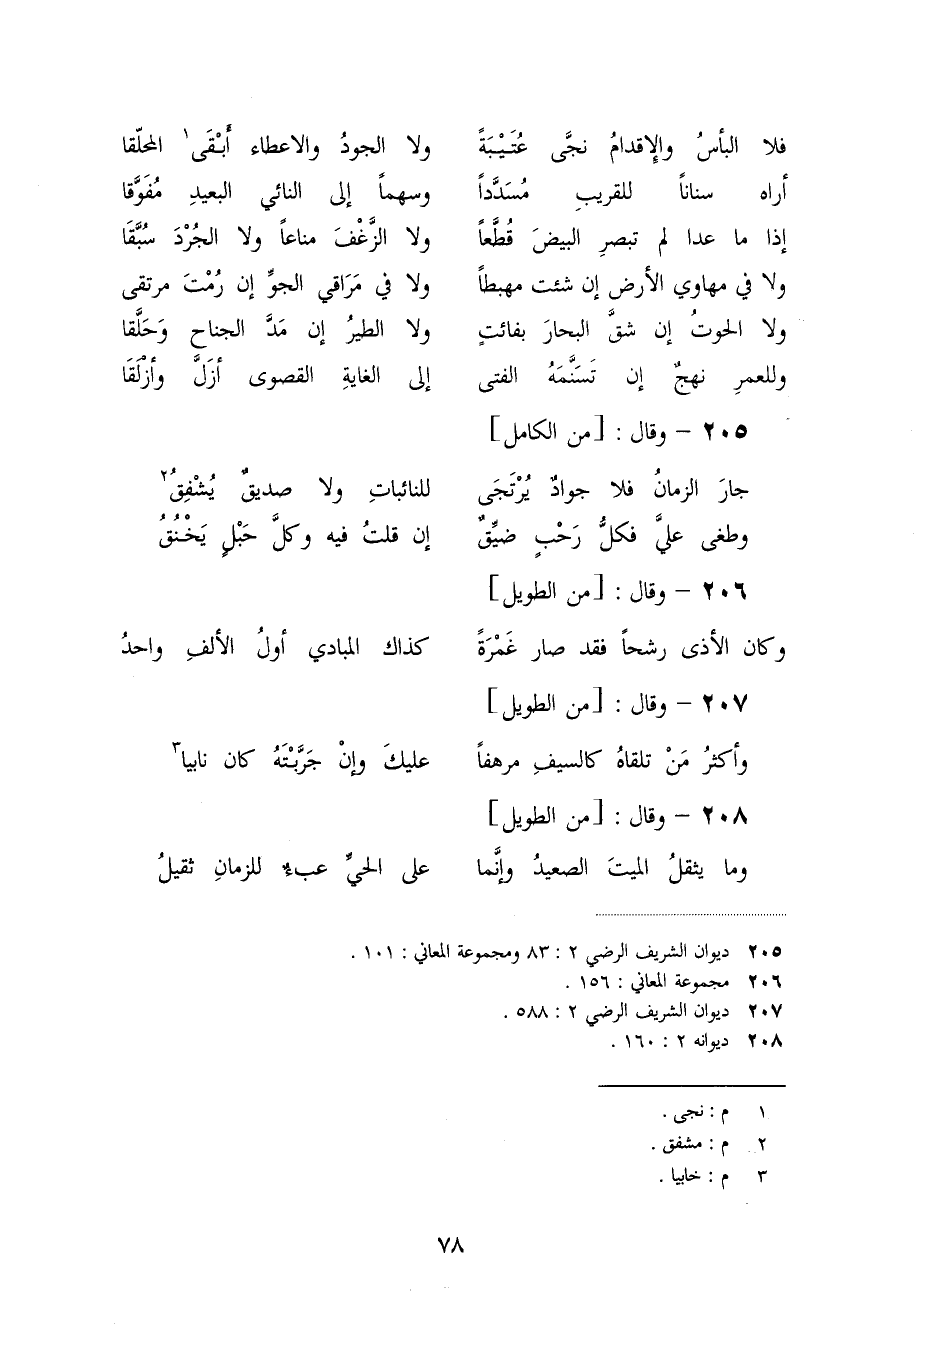 فلا البأسُ والإقدامُ نجَّى عُتَيْبَةً ولا الجودُ والاعطاء أَبْقَى١ المحلّقا
أراه سناناً للقريبِ مُسَدَّداً وسهماً إلى النائي البعيدِ مُفَوَّقا
إذا ما عدا لم تبصرِ البيضَ قُطَّعاً ولا الزَّغْفَ مناعاً ولا الجُرْدَ سُبَّقَا
ولا في مهاوي الأرض إن شئت مهبطاً ولا في مَرَاقي الجوِّ إن رُمْتَ مرتقى
ولا الحوتُ إن شقَّ البحارَ بفائتٍ ولا الطيرُ إن مَدَّ الجناح وَحَلَّقا
وللعمرِ نهجٌ إن تَسَنَّمَهُ الفتى إلى الغايةِ القصوى أزَلَّ وأزْلَقَا
٢٠٥ – وقال : [من الكامل]
جارَ الزمانُ فلا جوادٌ يُرْتَجَى للنائباتِ ولا صديقٌ يُشْفِقُ٢
وطغى عليَّ فكلُّ رَحْبٍ ضيِّقٌ إن قلتُ فيه وكلَّ حَبْلٍ يَخْنُقُ
٢٠٦ – وقال : [من الطويل]
وكان الأذى رشحاً فقد صار غَمْرَةً كذاك المبادي أولُ الألفِ واحدُ
٢٠٧ – وقال : [من الطويل]
وأكثرُ مَنْ تلقاهُ كالسيفِ مرهفاً عليكَ وإنْ جَرَّبْتَهُ كان نابيا٣
٢٠٨ – وقال : [من الطويل]
وما يثقلُ الميتَ الصعيدُ وإنَّما على الحيِّ عبء للزمانِ ثقيلُ
٢٠٥ ديوان الشريف الرضي ٢ : ٨٣ ومجموعة المعاني : ١٠١ .
٢٠٦ مجموعة المعاني : ١٥٦ .
٢٠٧ ديوان الشريف الرضي ٢ : ٥٨٨ .
٢٠٨ ديوانه ٢ : ١٦٠ .
١ م : نجى .
٢ م : مشفق .
٣ م : خابيا .
٧٨